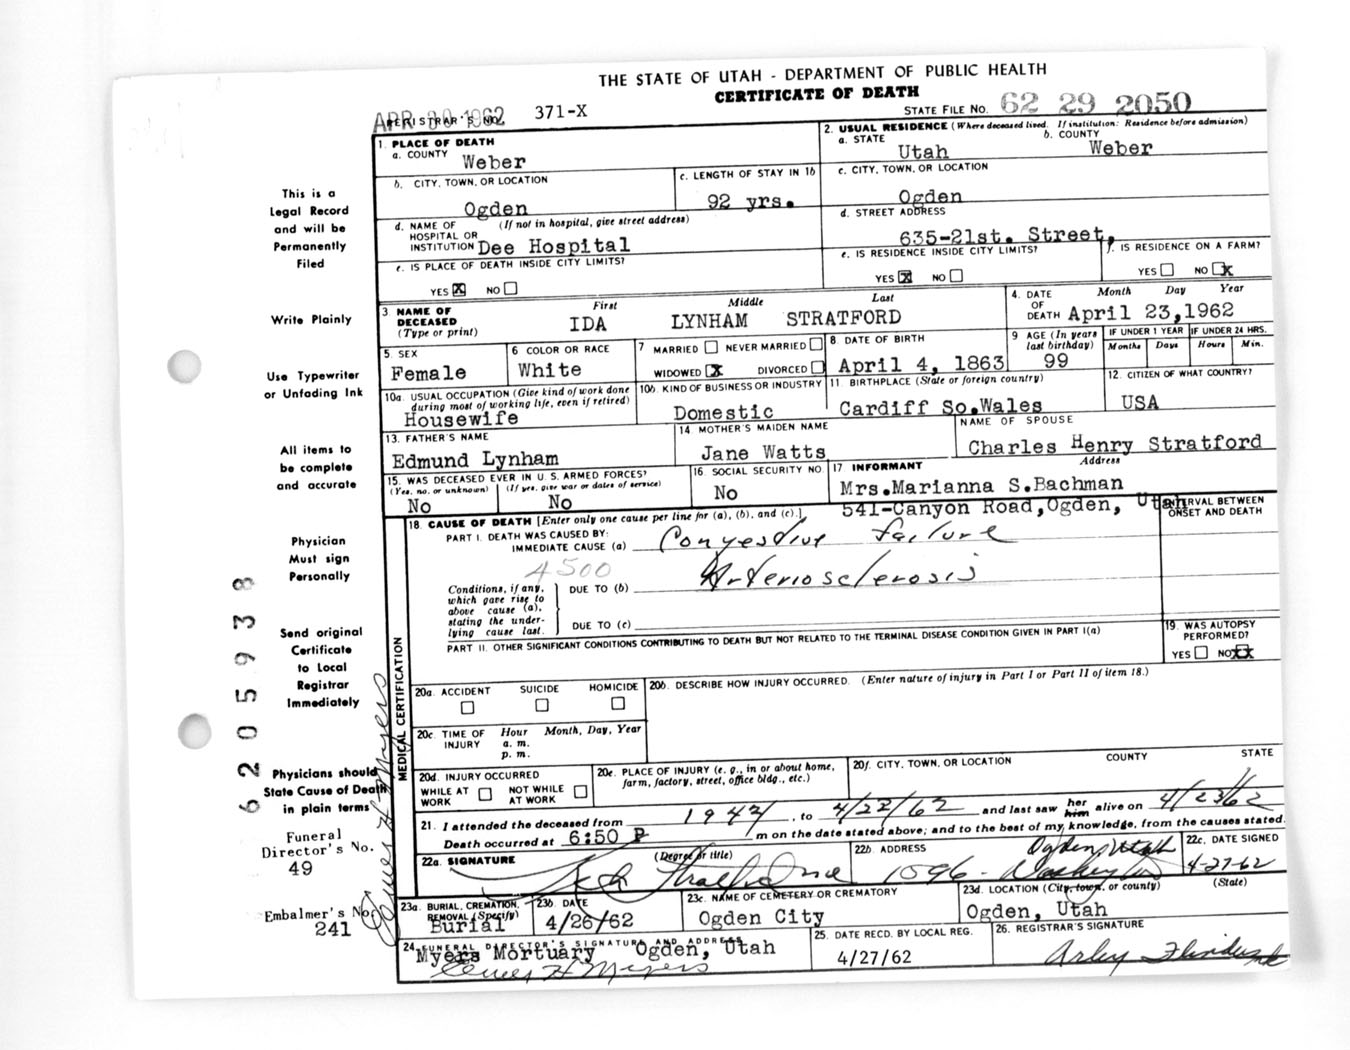 THE STATE OF UTAH - DEPARTMENT OF PUBLIC HEALTH
CERTIFICATE OF DEATH
APR 30 1962
REGISTRAR'S NO. 371-X
STATE FILE NO. 62 29 2050
1. PLACE OF DEATH
a. COUNTY Weber
2. USUAL RESIDENCE (Where deceased lived. If institution: Residence before admission)
a. STATE Utah b. COUNTY Weber
b. CITY, TOWN, OR LOCATION Ogden
c. LENGTH OF STAY IN 1b 92 yrs.
c. CITY, TOWN, OR LOCATION Ogden
d. NAME OF HOSPITAL OR INSTITUTION (If not in hospital, give street address) Dee Hospital
d. STREET ADDRESS 635-21st. Street,
e. IS PLACE OF DEATH INSIDE CITY LIMITS?
YES X NO
e. IS RESIDENCE INSIDE CITY LIMITS?
YES X NO
f. IS RESIDENCE ON A FARM?
YES NO X
3. NAME OF DECEASED (Type or print)
First Middle Last
IDA LYNHAM STRATFORD
4. DATE OF DEATH Month Day Year
April 23,1962
5. SEX Female
6 COLOR OR RACE White
7 MARRIED NEVER MARRIED
WIDOWED X DIVORCED
8. DATE OF BIRTH April 4, 1863
9 AGE (In years last birthday) 99
IF UNDER 1 YEAR Months Days
IF UNDER 24 HRS. Hours Min.
10a. USUAL OCCUPATION (Give kind of work done during most of working life, even if retired)
Housewife
10b. KIND OF BUSINESS OR INDUSTRY
Domestic
11. BIRTHPLACE (State or foreign country)
Cardiff So.Wales
12. CITIZEN OF WHAT COUNTRY?
USA
13. FATHER'S NAME
Edmund Lynham
14. MOTHER'S MAIDEN NAME
Jane Watts
NAME OF SPOUSE
Charles Henry Stratford
15. WAS DECEASED EVER IN U. S. ARMED FORCES?
(Yes, no, or unknown) No
(If yes, give war or dates of service) No
16. SOCIAL SECURITY NO.
No
17 INFORMANT Address
Mrs.Marianna S.Bachman
541-Canyon Road,Ogden, Utah
18. CAUSE OF DEATH [Enter only one cause per line for (a), (b), and (c).]
INTERVAL BETWEEN ONSET AND DEATH
PART I. DEATH WAS CAUSED BY:
IMMEDIATE CAUSE (a) Congestive failure
4500
Conditions, if any, which gave rise to above cause (a), stating the underlying cause last.
DUE TO (b) Arteriosclerosis
DUE TO (c)
PART II. OTHER SIGNIFICANT CONDITIONS CONTRIBUTING TO DEATH BUT NOT RELATED TO THE TERMINAL DISEASE CONDITION GIVEN IN PART I(a)
19. WAS AUTOPSY PERFORMED?
YES NO XX
MEDICAL CERTIFICATION
20a. ACCIDENT SUICIDE HOMICIDE
20b. DESCRIBE HOW INJURY OCCURRED. (Enter nature of injury in Part I or Part II of item 18.)
20c. TIME OF INJURY Hour Month, Day, Year
a. m.
p. m.
20d. INJURY OCCURRED
WHILE AT WORK NOT WHILE AT WORK
20e. PLACE OF INJURY (e. g., in or about home, farm, factory, street, office bldg., etc.)
20f. CITY, TOWN, OR LOCATION COUNTY STATE
21. I attended the deceased from 1947, to 4/22/62 and last saw her him alive on 4/23/62
Death occurred at 6:50 P m on the date stated above; and to the best of my knowledge, from the causes stated.
22a. SIGNATURE (Degree or title)
22b. ADDRESS Ogden, Utah
1096- Washington
22c. DATE SIGNED
4-27-62
23a. BURIAL, CREMATION, REMOVAL (Specify)
Burial
23b. DATE
4/26/62
23c. NAME OF CEMETERY OR CREMATORY
Ogden City
23d. LOCATION (City, town, or county) (State)
Ogden, Utah
24 FUNERAL DIRECTOR'S SIGNATURE AND ADDRESS
Myers Mortuary Ogden, Utah
Elmer H Myers
25. DATE RECD. BY LOCAL REG.
4/27/62
26. REGISTRAR'S SIGNATURE
Arley
This is a
Legal Record
and will be
Permanently
Filed
Write Plainly
Use Typewriter
or Unfading Ink
All items to
be complete
and accurate
Physician
Must sign
Personally
Send original
Certificate
to Local
Registrar
Immediately
Physicians should
State Cause of Death
in plain terms
Funeral
Director's No.
49
Embalmer's No.
241
Elmer H Myers
620 5938